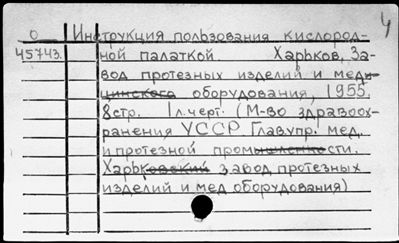 4
О Инструкция пользования кислород-
45743. ной палаткой. Харьков, За-
вод протезных изделий и мед
оборудования, 1955.
8стр. 1л.черт. (М-во здравоох-
ранения УССР Глав.упр. мед.
и протезной промышленности.
Харьковский завод протезных
изделий и мед оборудования)